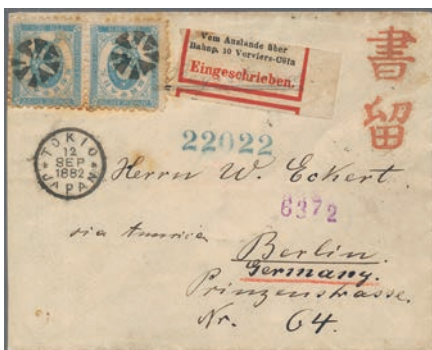 Vom Auslande über
Bahnp. 10 Verviers-Cöln
Eingeschrieben.
書留
22022
TOKIO
12
SEP
1882
JAPAN
Herrn W. Eckert.
6372
via America
Berlin.
Germany.
Prinzenstrasse.
Nr. 64.